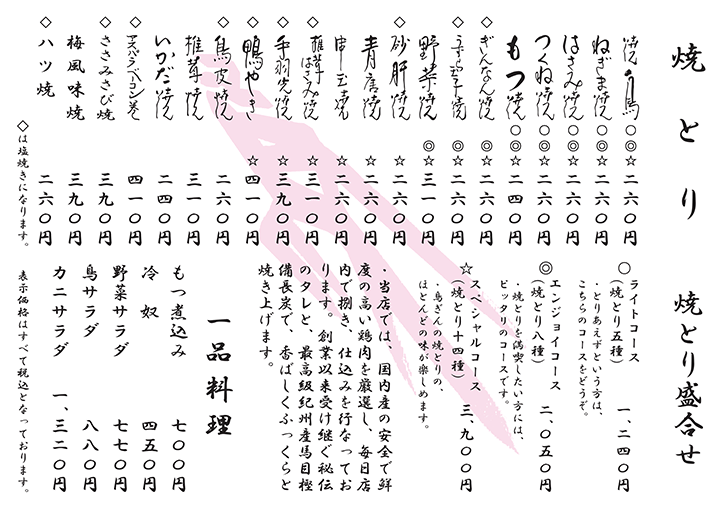 焼とり
焼き鳥 ○◎☆ 二六〇円
ねぎま焼 ○◎☆ 二六〇円
はさみ焼 ○◎☆ 二六〇円
つくね焼 ○◎☆ 二六〇円
もつ焼 ○◎☆ 二四〇円
◇ぎんなん焼 ◎☆ 二六〇円
◇うずら玉子焼 ◎☆ 二六〇円
野菜焼 ◎ 三一〇円
◇砂肝焼 ☆ 二六〇円
青唐焼 ☆ 二六〇円
玉焼 ☆ 二六〇円
◇椎茸はさみ焼 ☆ 三一〇円
◇手羽先焼 ☆ 三九〇円
◇鴨やき ☆ 四一〇円
◇鳥皮焼 二六〇円
椎茸焼 三一〇円
いかだ焼 二四〇円
◇アスパラベーコン巻 四一〇円
◇ささみさび焼 三九〇円
梅風味焼 三九〇円
◇ハツ焼 二六〇円
◇は塩焼きになります。
焼とり盛合せ
○ライトコース
(焼とり五種) 一、二四〇円
・とりあえずという方は、
こちらのコースをどうぞ。
◎エンジョイコース
(焼とり八種) 二、〇五〇円
・焼とりを満喫したい方には、
ピッタリのコースです。
☆スペシャルコース
(焼とり十四種) 三、九〇〇円
・鳥ぎんの焼とりの、
ほとんどの味が楽しめます。
・当店では、国内産の安全で鮮
度の高い鶏肉を厳選し、毎日店
内で捌き、仕込みを行なってお
ります。創業以来受け継ぐ秘伝
のタレと、最高級紀州産馬目樫
備長炭で、香ばしくふっくらと
焼き上げます。
一品料理
もつ煮込み 七〇〇円
冷奴 四五〇円
野菜サラダ 七七〇円
鳥サラダ 八八〇円
カニサラダ 一、三二〇円
表示価格はすべて税込となっております。